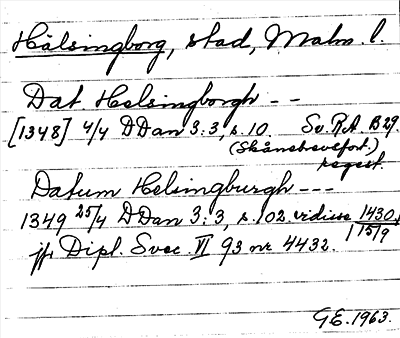 Hälsingborg, stad, Malm. l.
Dat Helsingborgh - -
[1348] 4/4 DDan 3:3, s. 10. Sv. R.A. B 29.
(Skånebrevfört.)
regest.
Datum Helsingburgh - - -
1349 25/4 DDan 3:3, s. 102. vidisse 1430
15/9
jfr Dipl. Svec. VI 93 nr 4432.
G.E. 1963.